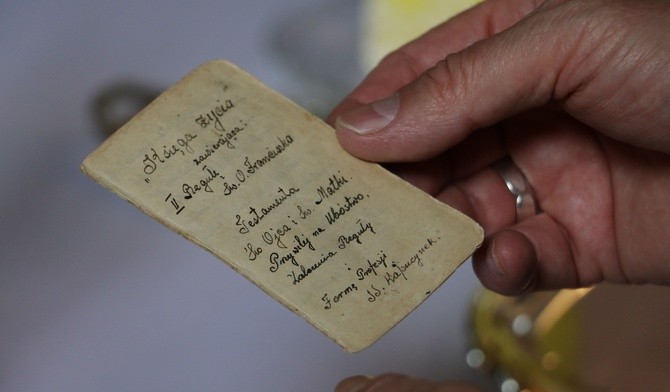 „Księga życia
zawierająca:
II Regułę
św. O. Franciszka
Testamenta
św Ojca i św. Matki.
Przywilej na Ubóstwo.
Reguły
i
Formę Profesji
SS. Kapucynek.